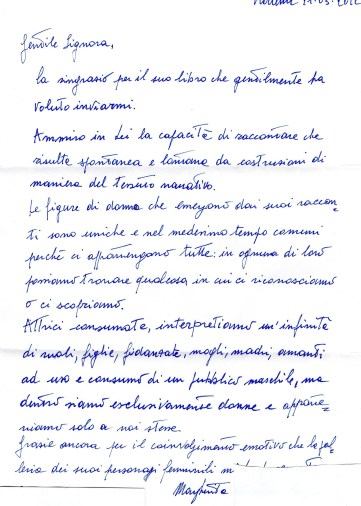 Gentile Signora,
la ringrazio per il suo libro che gentilmente ha
voluto inviarmi.
Ammiro in Lei la capacità di raccontare che
risulta spontanea e lontana da costruzioni di
maniera del tessuto narrativo.
Le figure di donna che emergono dai suoi raccon=
ti sono uniche e nel medesimo tempo comuni
perché ci appartengono tutte: in ognuna di loro
possiamo trovare qualcosa in cui ci riconosciamo
o ci scopriamo.
Attrici consumate, interpretiamo un'infinità
di ruoli, figlie, fidanzate, mogli, madri, amanti
ad uso e consumo di un pubblico maschile, ma
dentro siamo esclusivamente donne e apparte=
niamo solo a noi stesse.
Grazie ancora per il coinvolgimento emotivo che la gal=
leria dei suoi personaggi femminili
Margherita